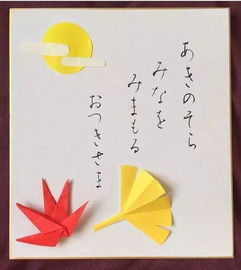 あきのそら
みなを
みまもる
おつきさま